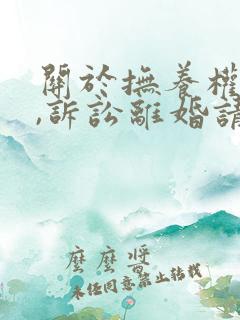 關於撫養權
,訴訟離婚請
麼麼醬
未經同意禁止轉載